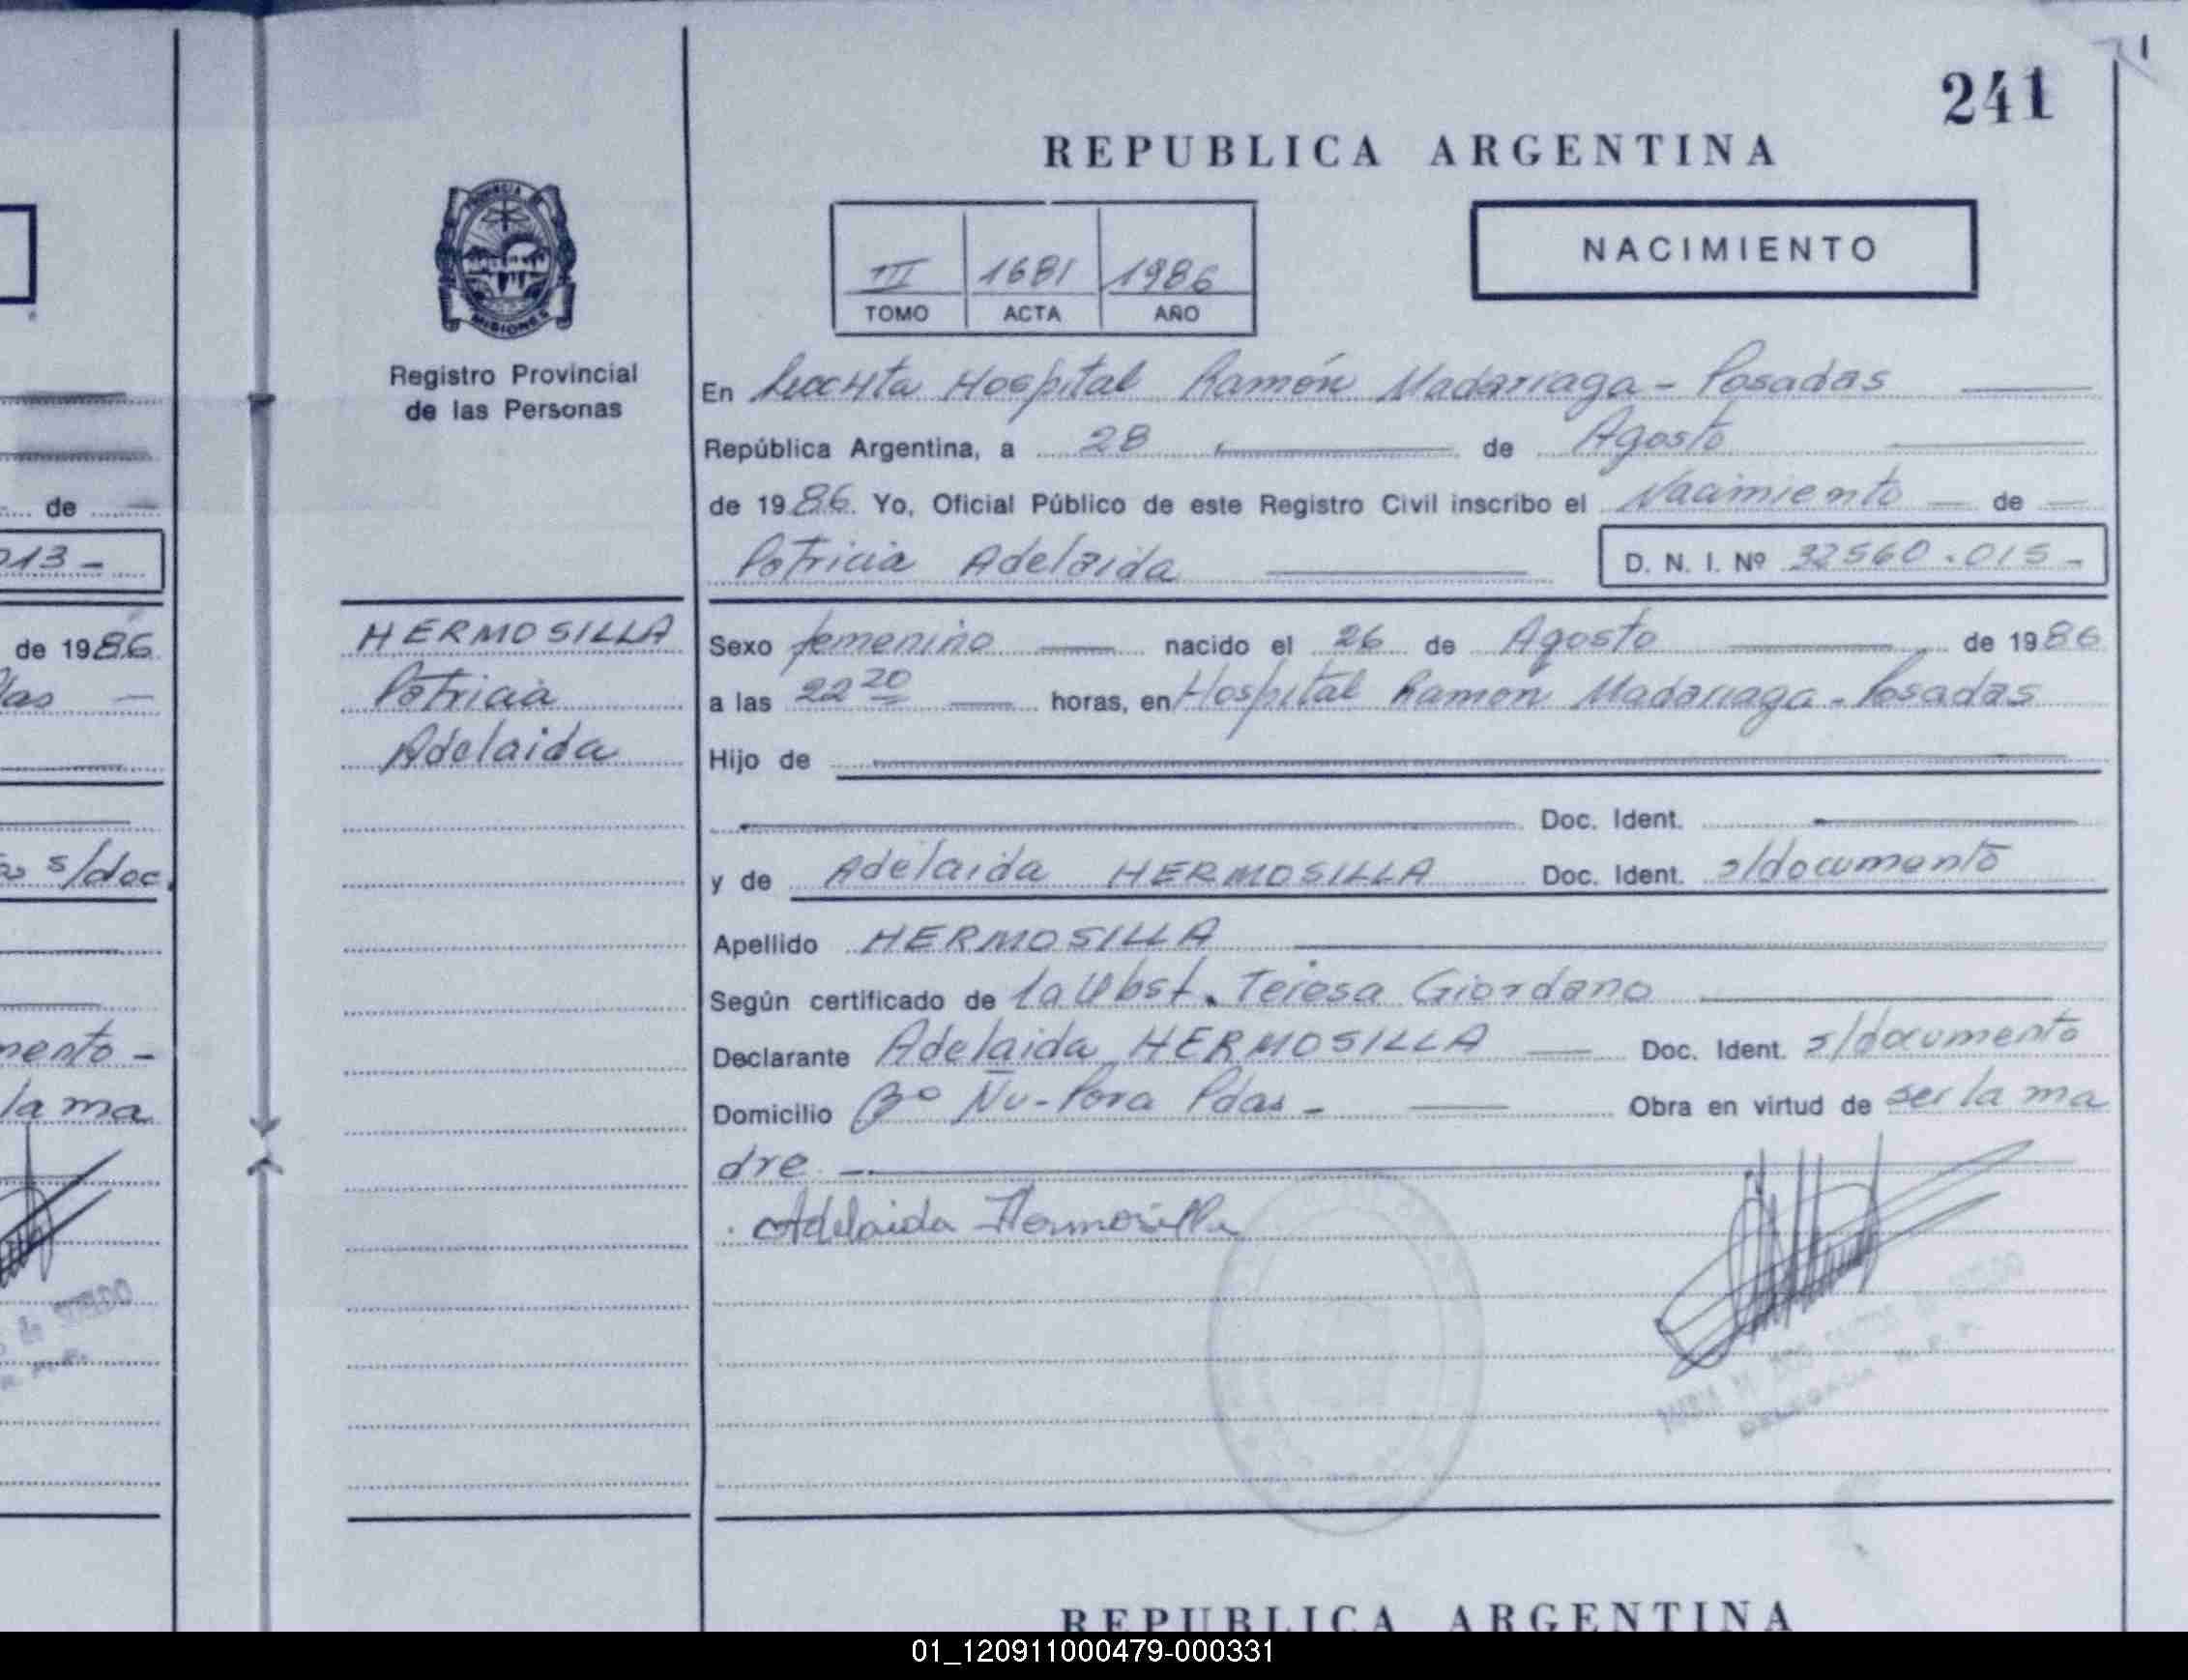 241
REPUBLICA ARGENTINA
NACIMIENTO
III 1681 1986
TOMO ACTA AÑO
PROVINCIA
MISIONES
Registro Provincial
de las Personas
En Hospital Ramón Madarriaga - Posadas
República Argentina, a 28 de Agosto
de 1986. Yo, Oficial Público de este Registro Civil inscribo el Nacimiento — de —
Patricia Adelaida
D. N. I. Nº 32560.015-
HERMOSILLA
Patricia
Adelaida
Sexo femenino nacido el 26 de Agosto de 1986
a las 22 20 horas, en Hospital Ramon Madariaga - Posadas
Hijo de
Doc. Ident.
y de Adelaida HERMOSILLA Doc. Ident. s/documento
Apellido HERMOSILLA
Según certificado de la Obst. Teresa Giordano
Declarante Adelaida HERMOSILLA Doc. Ident. s/documento
Domicilio Bº Ñu-Pora Pdas - Obra en virtud de ser la ma
dre -
Adelaida Hermosilla
de
013-
de 1986
das -
s/doc.
mento -
la ma
REPUBLICA ARGENTINA
01_120911000479-000331